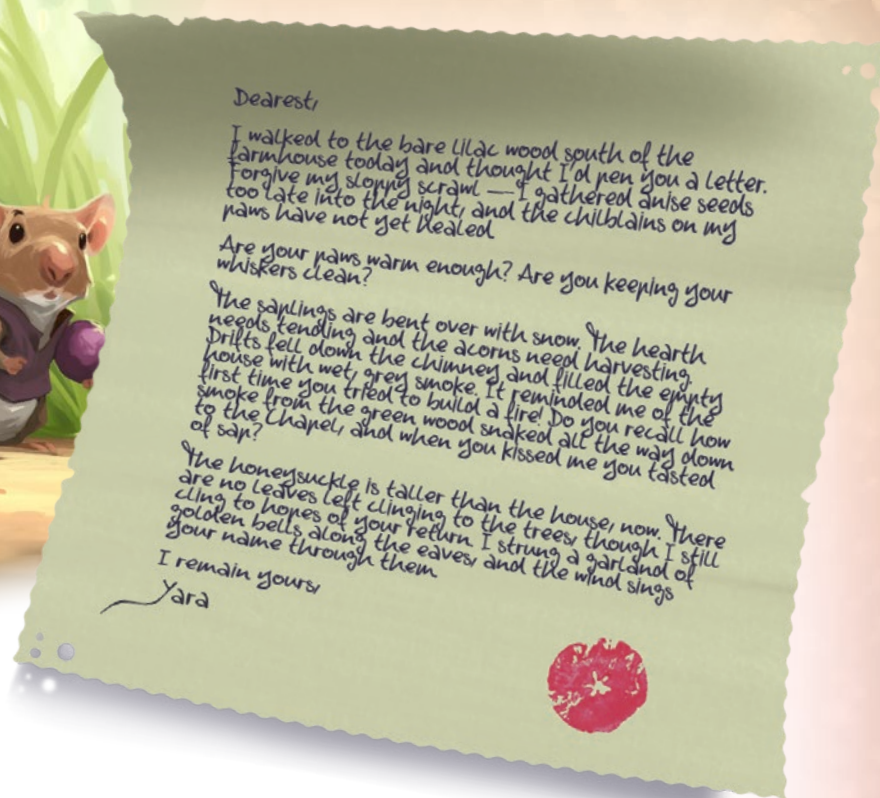 Dearest,
I walked to the bare lilac wood south of the
farmhouse today and thought I'd pen you a letter.
Forgive my sloppy scrawl — I gathered anise seeds
too late into the night, and the chilblains on my
paws have not yet healed
Are your paws warm enough? Are you keeping your
whiskers clean?
The saplings are bent over with snow. The hearth
needs tending and the acorns need harvesting.
Drifts fell down the chimney and filled the empty
house with wet, grey smoke. It reminded me of the
first time you tried to build a fire! Do you recall how
smoke from the green wood snaked all the way down
to the Chapel, and when you kissed me you tasted
of sap?
The honeysuckle is taller than the house, now. There
are no leaves left clinging to the trees, though I still
cling to hopes of your return. I strung a garland of
golden bells along the eaves, and the wind sings
your name through them
I remain yours,
Yara